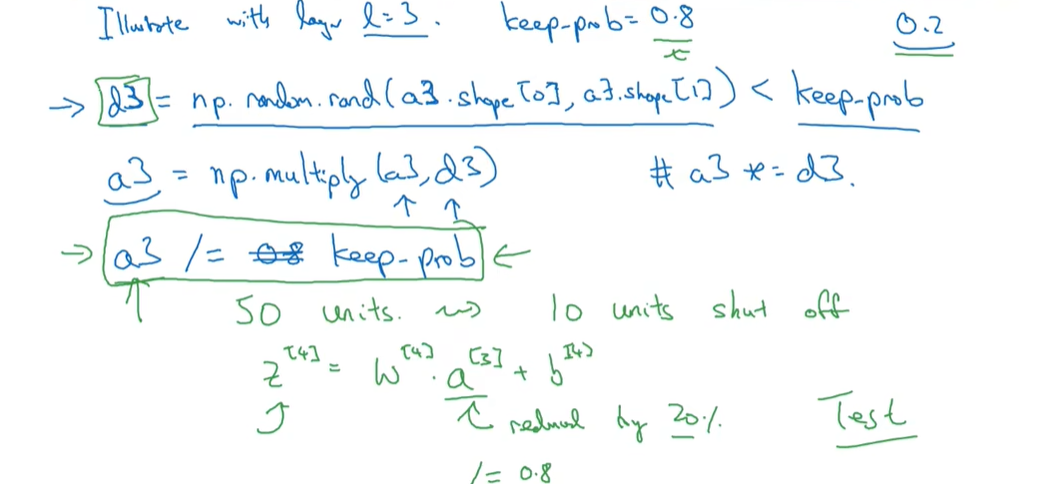 Illustrate with layer l=3. keep-prob=0.8 0.2
→ d3 = np.random.rand(a3.shape[0], a3.shape[1]) < keep-prob
a3 = np.multiply(a3, d3) # a3 *= d3.
→ a3 /= 0.8 keep-prob ←
50 units. ⇝ 10 units shut off
z^[4] = W^[4] · a^[3] + b^[4]
reduced by 20% Test
/= 0.8